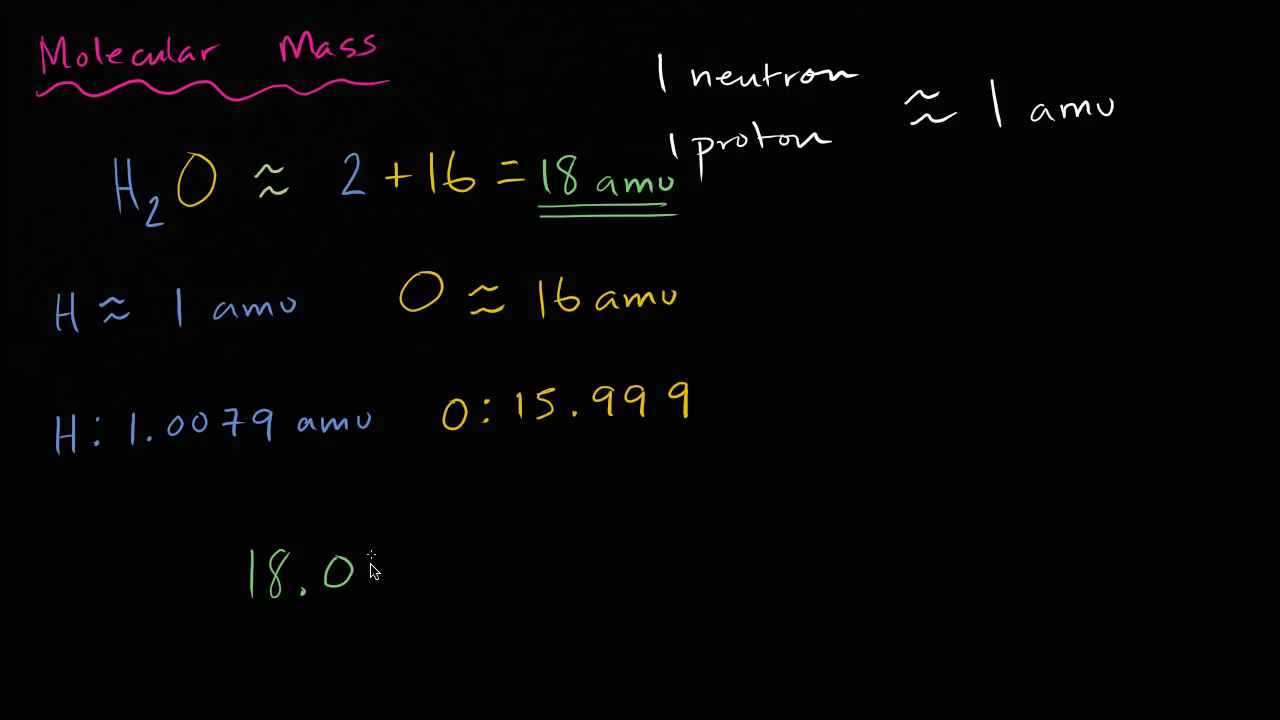 Molecular Mass
1 neutron
1 proton
≈ 1 amu
H₂O ≈ 2 + 16 = 18 amu
H ≈ 1 amu
O ≈ 16 amu
H: 1.0079 amu
O: 15.999
18.0